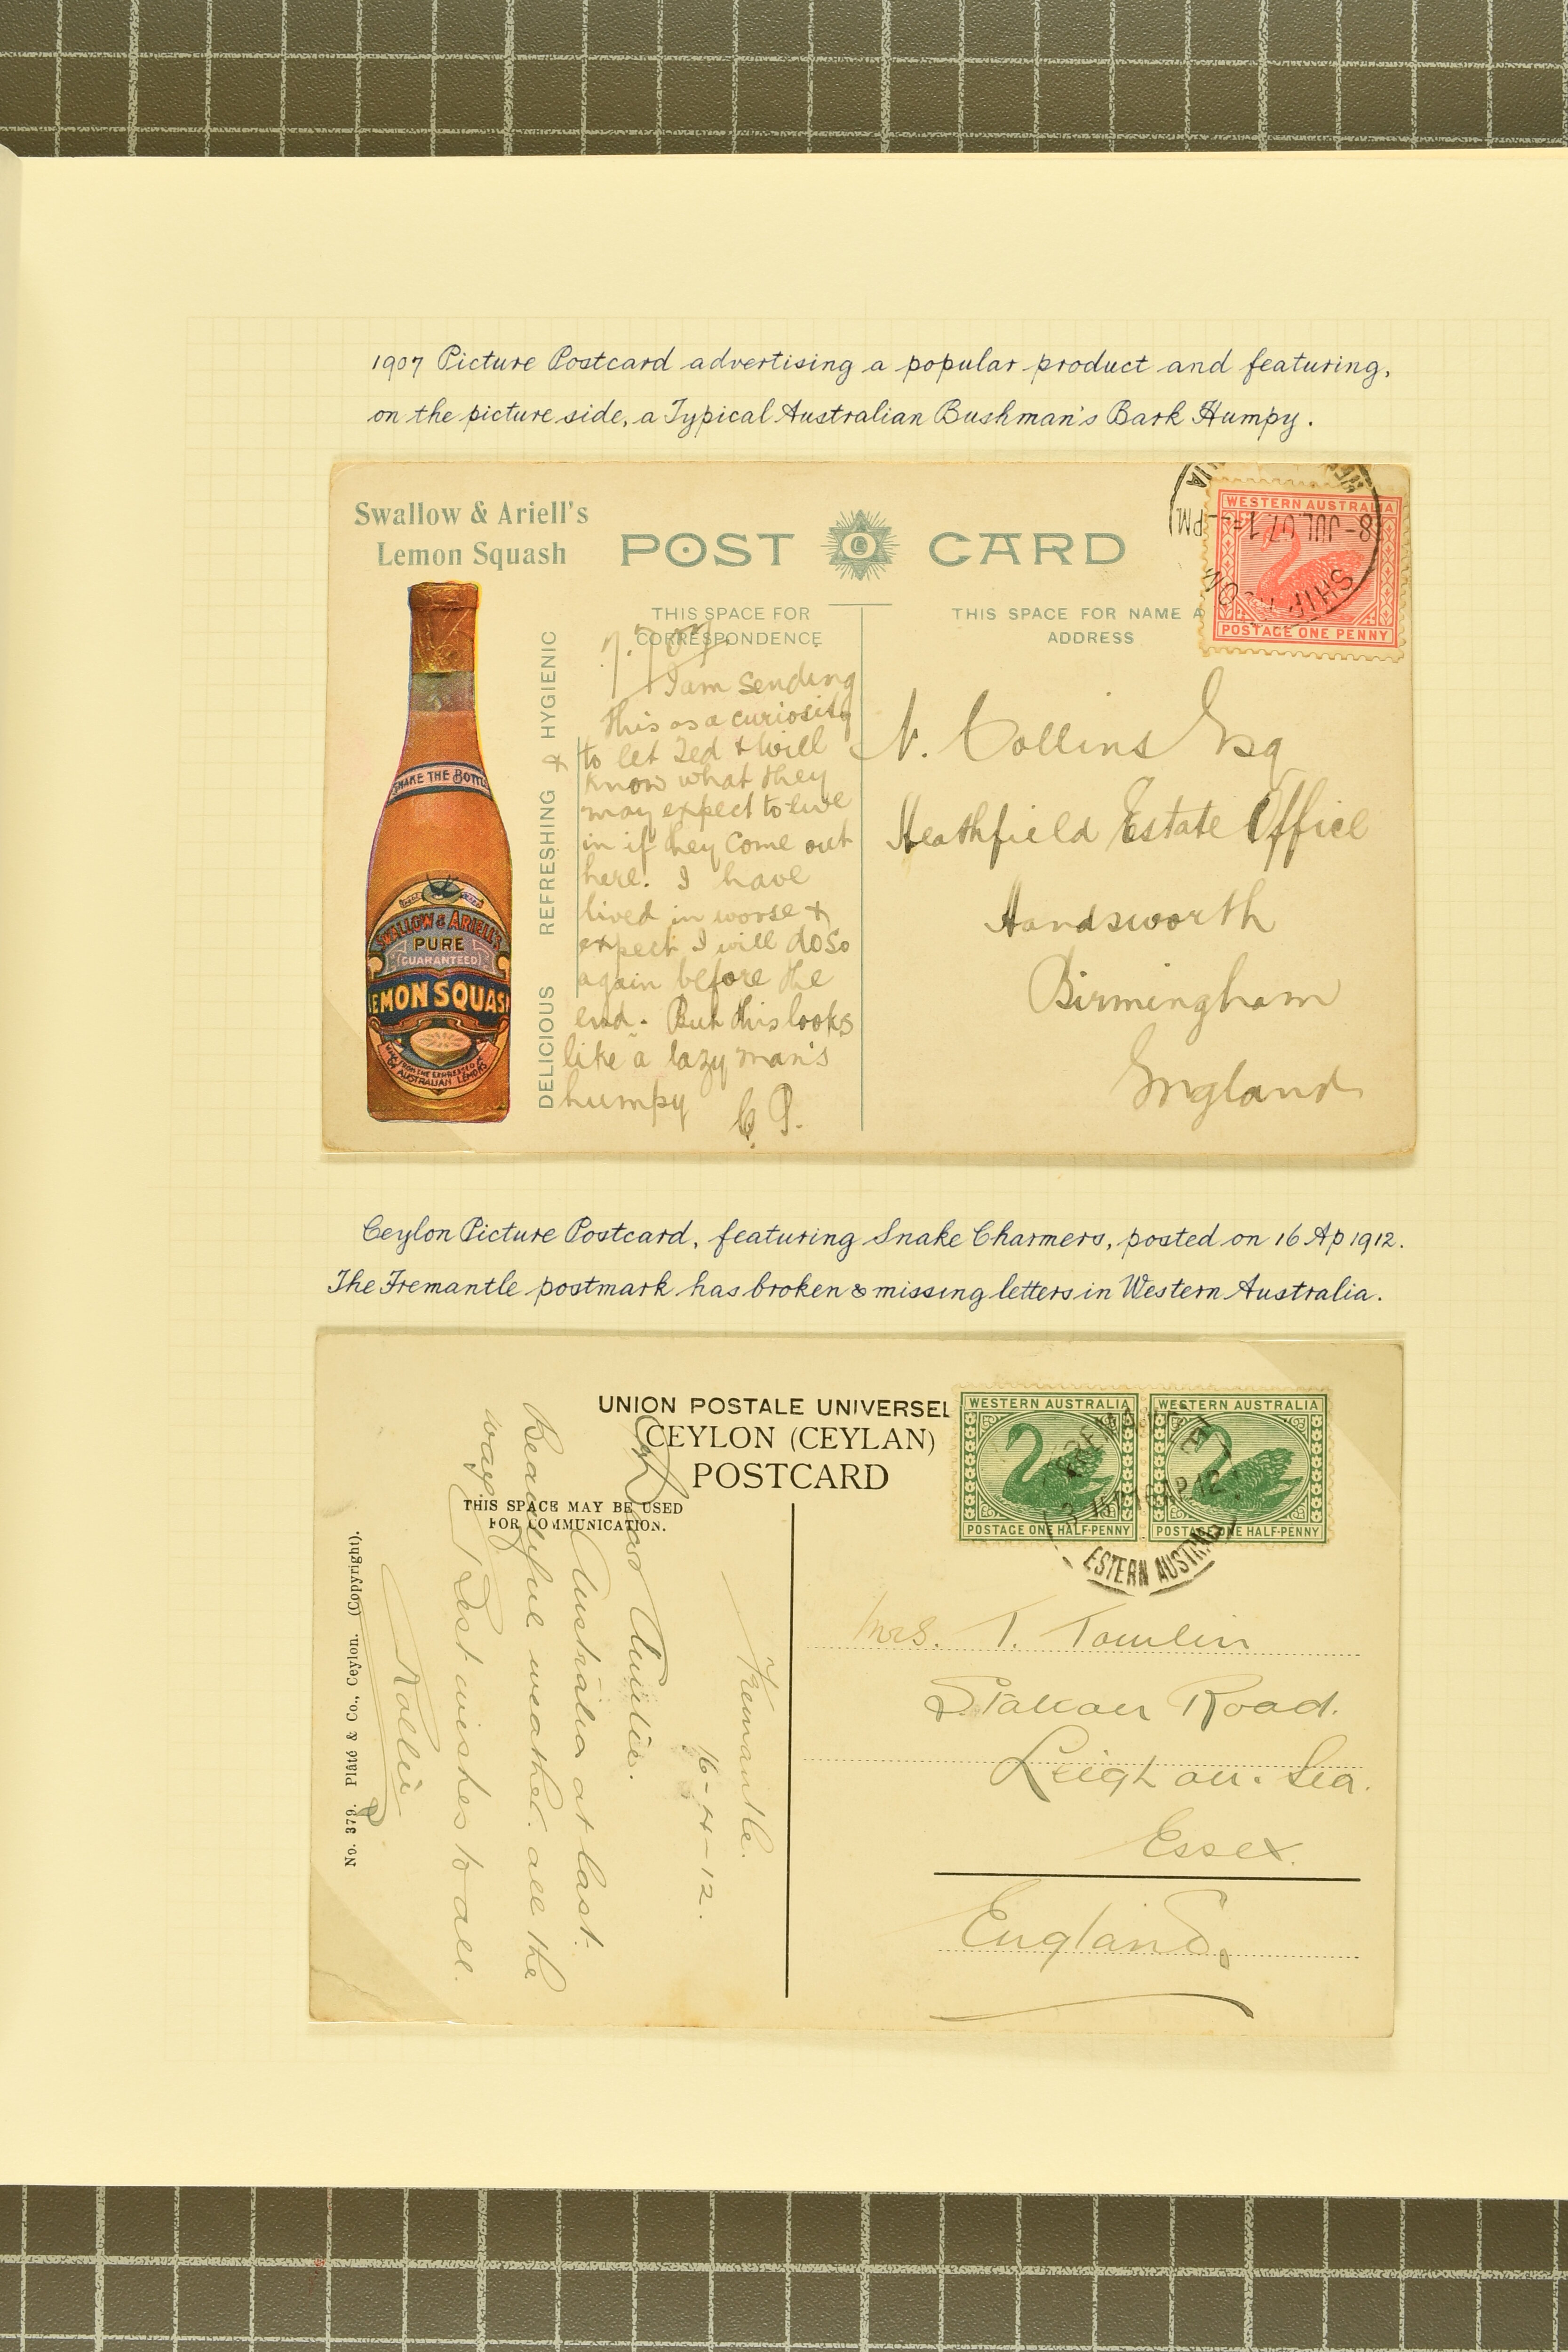 1907 Picture Postcard advertising a popular product and featuring,
on the picture side, a Typical Australian Bushman's Bark Humpy.
Swallow & Ariell's
Lemon Squash
POST CARD
THIS SPACE FOR
CORRESPONDENCE
THIS SPACE FOR NAME A
ADDRESS
WESTERN AUSTRALIA
POSTAGE ONE PENNY
8-JUL 07 1
PM
SHIP
DELICIOUS REFRESHING & HYGIENIC
SHAKE THE BOTTLE
SWALLOW & ARIELL'S
PURE
(GUARANTEED)
LEMON SQUASH
AUSTRALIAN LEMONS
7.7.07
I am sending
this as a curiosity
to let Ted & Will
know what they
may expect to live
in if they come out
here. I have
lived in worse &
expect I will do so
again before the
end. But this looks
like a lazy man's
humpy
C. P.
N. Collins Esq
Heathfield Estate Office
Handsworth
Birmingham
England
Ceylon Picture Postcard, featuring Snake Charmers, posted on 16 Ap 1912.
The Fremantle postmark has broken & missing letters in Western Australia.
UNION POSTALE UNIVERSEL
CEYLON (CEYLAN)
POSTCARD
THIS SPACE MAY BE USED
FOR COMMUNICATION.
WESTERN AUSTRALIA
POSTAGE ONE HALF-PENNY
WESTERN AUSTRALIA
POSTAGE ONE HALF-PENNY
AP 12
ESTERN AUSTRAL
No. 379. Plâté & Co., Ceylon. (Copyright).
Fremantle.
16-4-12.
My Dear Auntie.
Australia at last.
Beautiful weather. all the
way. Best wishes to all.
Mrs. T. Tomlin
Road.
Leigh on. Sea.
Essex.
England.